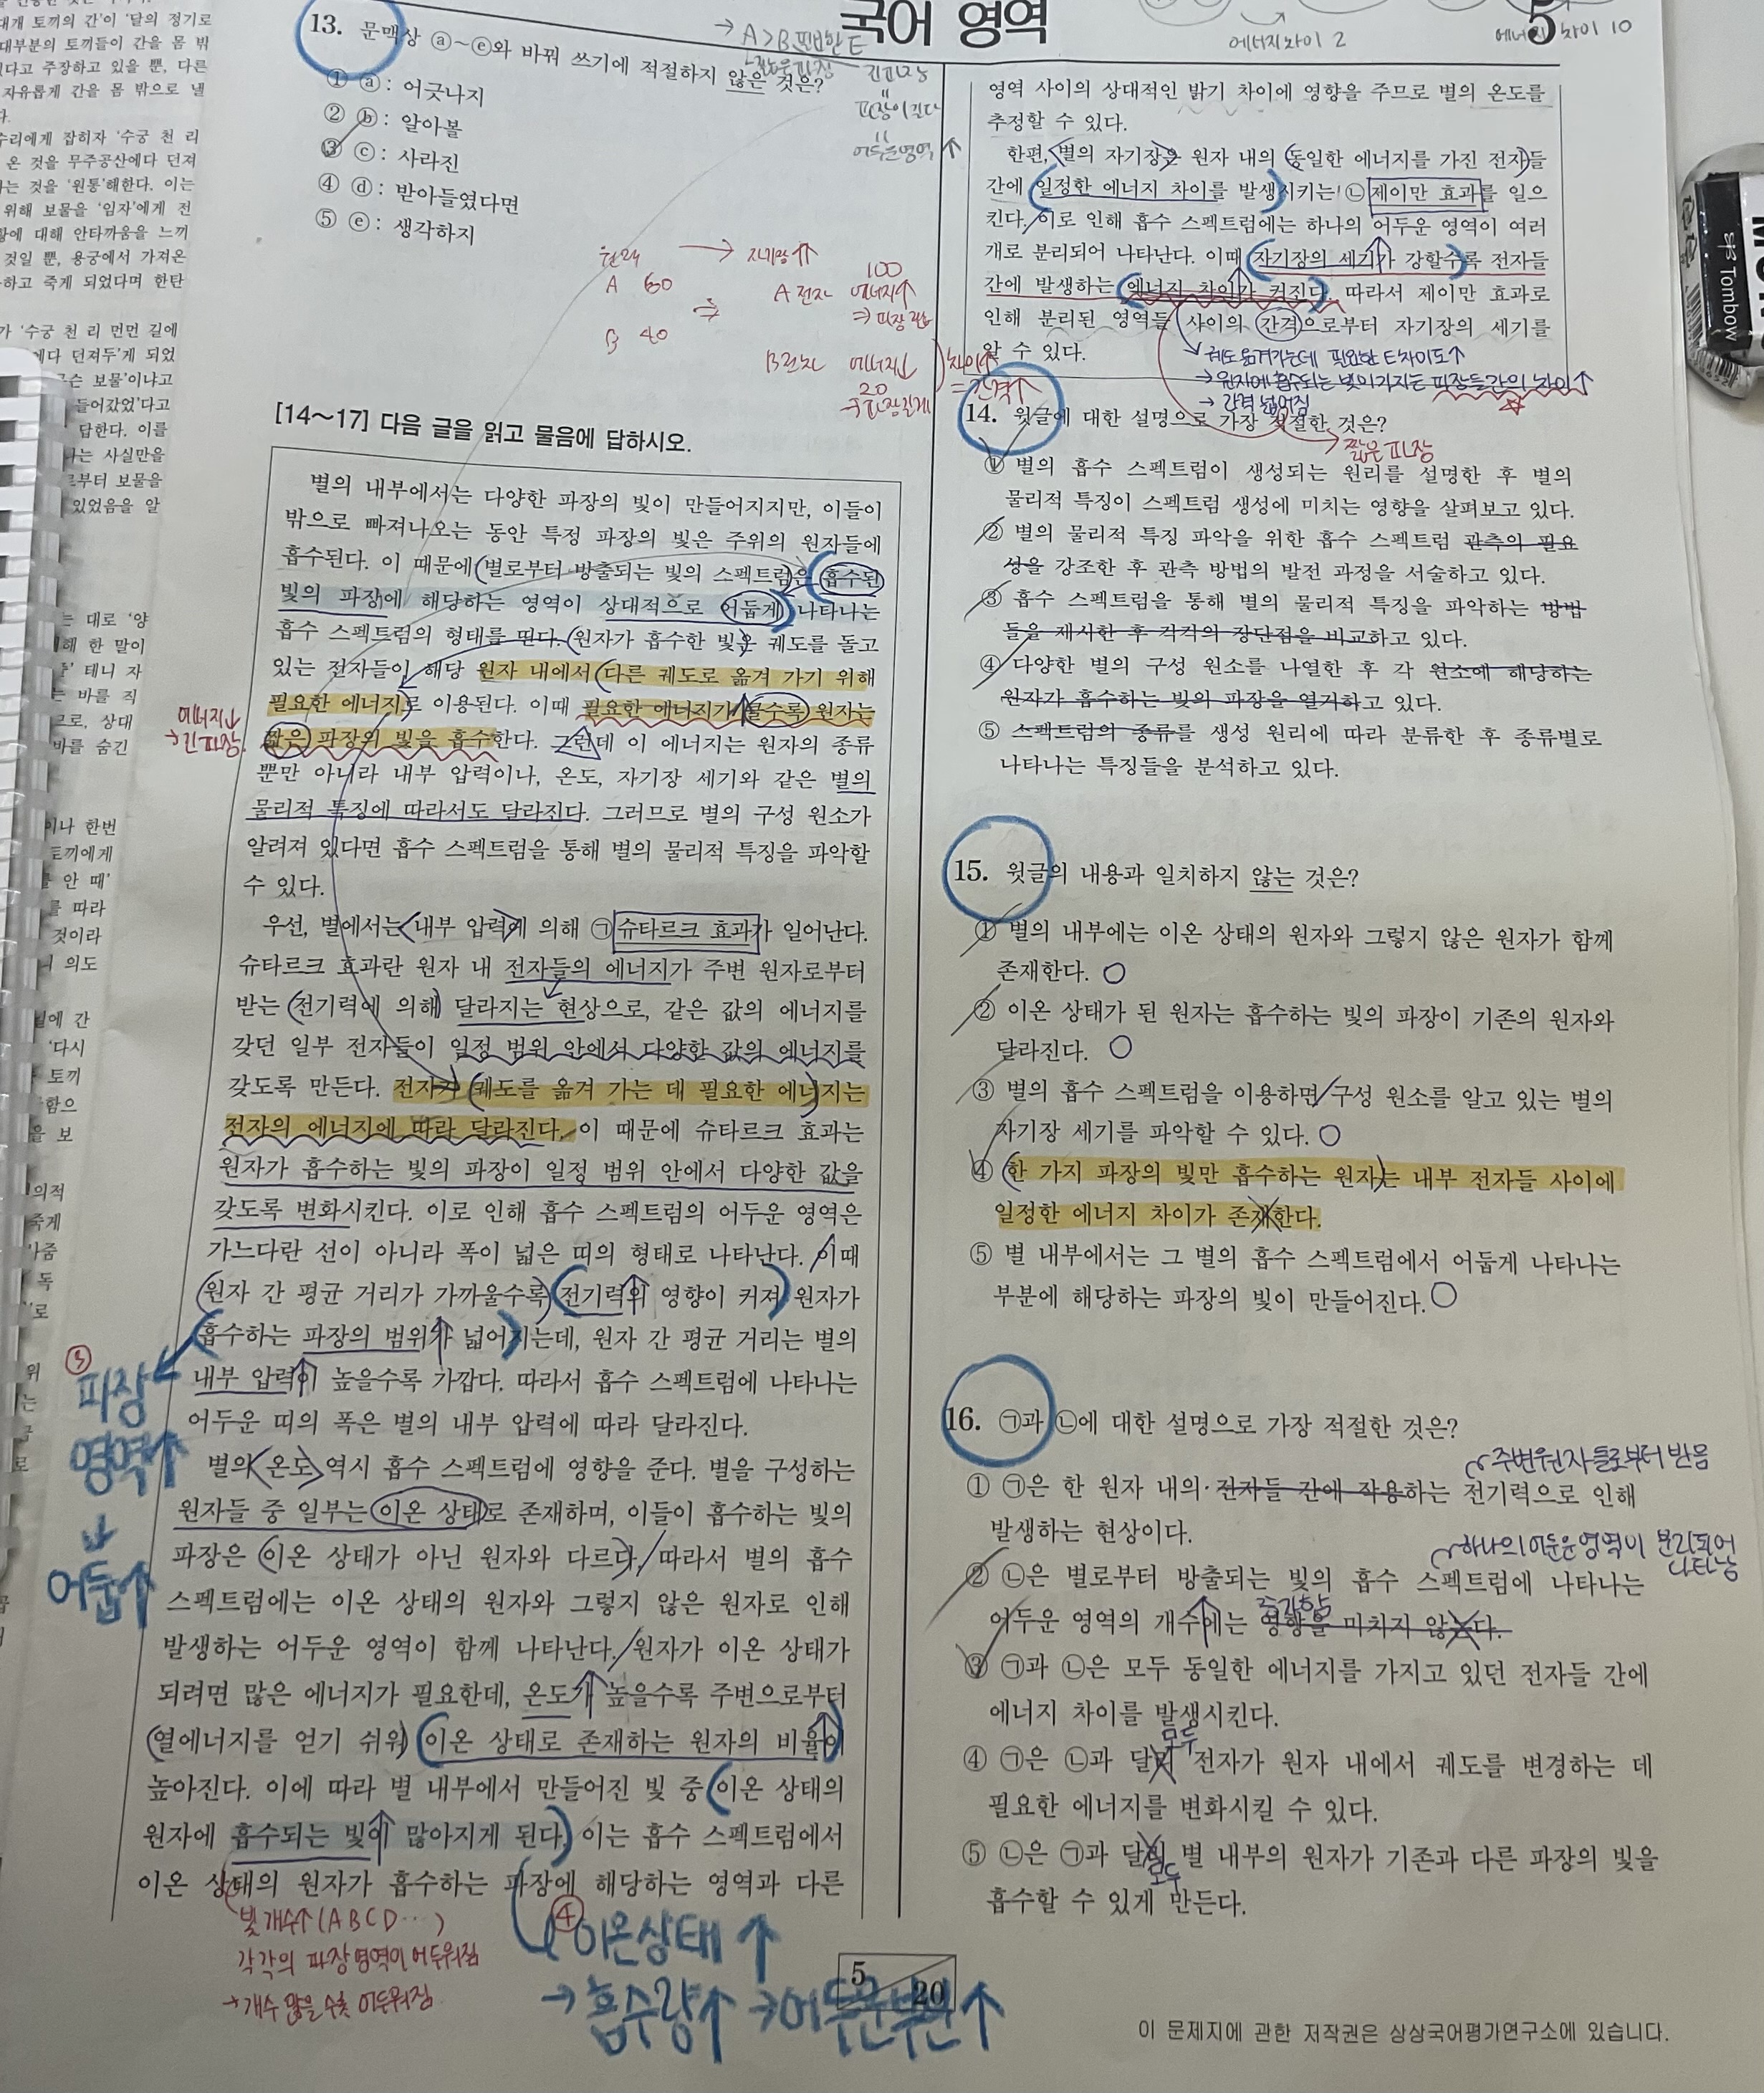 국어 영역
5
13. 문맥상 ⓐ~ⓔ와 바꿔 쓰기에 적절하지 않은 것은?
① ⓐ: 어긋나지
② ⓑ: 알아볼
③ ⓒ: 사라진
④ ⓓ: 받아들였다면
⑤ ⓔ: 생각하지
[14～17] 다음 글을 읽고 물음에 답하시오.
별의 내부에서는 다양한 파장의 빛이 만들어지지만, 이들이
밖으로 빠져나오는 동안 특정 파장의 빛은 주위의 원자들에
흡수된다. 이 때문에 별로부터 방출되는 빛의 스펙트럼은 흡수된
빛의 파장에 해당하는 영역이 상대적으로 어둡게 나타나는
흡수 스펙트럼의 형태를 띤다. 원자가 흡수한 빛은 궤도를 돌고
있는 전자들이 해당 원자 내에서 다른 궤도로 옮겨 가기 위해
필요한 에너지로 이용된다. 이때 필요한 에너지가 클수록 원자는
짧은 파장의 빛을 흡수한다. 그런데 이 에너지는 원자의 종류
뿐만 아니라 내부 압력이나, 온도, 자기장 세기와 같은 별의
물리적 특징에 따라서도 달라진다. 그러므로 별의 구성 원소가
알려져 있다면 흡수 스펙트럼을 통해 별의 물리적 특징을 파악할
수 있다.
우선, 별에서는 내부 압력에 의해 ㉠슈타르크 효과가 일어난다.
슈타르크 효과란 원자 내 전자들의 에너지가 주변 원자로부터
받는 전기력에 의해 달라지는 현상으로, 같은 값의 에너지를
갖던 일부 전자들이 일정 범위 안에서 다양한 값의 에너지를
갖도록 만든다. 전자가 궤도를 옮겨 가는 데 필요한 에너지는
전자의 에너지에 따라 달라진다. 이 때문에 슈타르크 효과는
원자가 흡수하는 빛의 파장이 일정 범위 안에서 다양한 값을
갖도록 변화시킨다. 이로 인해 흡수 스펙트럼의 어두운 영역은
가느다란 선이 아니라 폭이 넓은 띠의 형태로 나타난다. 이때
원자 간 평균 거리가 가까울수록 전기력의 영향이 커져 원자가
흡수하는 파장의 범위가 넓어지는데, 원자 간 평균 거리는 별의
내부 압력이 높을수록 가깝다. 따라서 흡수 스펙트럼에 나타나는
어두운 띠의 폭은 별의 내부 압력에 따라 달라진다.
별의 온도 역시 흡수 스펙트럼에 영향을 준다. 별을 구성하는
원자들 중 일부는 이온 상태로 존재하며, 이들이 흡수하는 빛의
파장은 이온 상태가 아닌 원자와 다르다. 따라서 별의 흡수
스펙트럼에는 이온 상태의 원자와 그렇지 않은 원자로 인해
발생하는 어두운 영역이 함께 나타난다. 원자가 이온 상태가
되려면 많은 에너지가 필요한데, 온도가 높을수록 주변으로부터
열에너지를 얻기 쉬워 이온 상태로 존재하는 원자의 비율이
높아진다. 이에 따라 별 내부에서 만들어진 빛 중 이온 상태의
원자에 흡수되는 빛이 많아지게 된다. 이는 흡수 스펙트럼에서
이온 상태의 원자가 흡수하는 파장에 해당하는 영역과 다른
에너지↓
→ 긴 파장
③ 파장
영역↑
↓
어둡↑
빛 개수↑ (A B C D …)
각각의 파장 영역이 어두워짐
→ 개수 많을수록 어두워짐
④ 이온상태↑
→ 흡수량↑ → 어두운 부분↑
원래 → 자기장↑
A 60 ⇒ A 전자 에너지↑ 100
⇒ 파장 짧
B 40
B 전자 에너지↓ 20
차이↑ = 간격↑
에너지 차이 2
에너지 차이 10
영역 사이의 상대적인 밝기 차이에 영향을 주므로 별의 온도를
추정할 수 있다.
한편, 별의 자기장은 원자 내의 동일한 에너지를 가진 전자들
간에 일정한 에너지 차이를 발생시키는 ㉡제이만 효과를 일으
킨다. 이로 인해 흡수 스펙트럼에는 하나의 어두운 영역이 여러
개로 분리되어 나타난다. 이때 자기장의 세기가 강할수록 전자들
간에 발생하는 에너지 차이가 커진다. 따라서 제이만 효과로
인해 분리된 영역들 사이의 간격으로부터 자기장의 세기를
알 수 있다.
궤도 옮겨가는데 필요한 E차이도↑
→ 원자에 흡수되는 빛이 가지는 파장들간의 차이↑
→ 간격 넓어짐
짧은 파장
14. 윗글에 대한 설명으로 가장 적절한 것은?
① 별의 흡수 스펙트럼이 생성되는 원리를 설명한 후 별의
물리적 특징이 스펙트럼 생성에 미치는 영향을 살펴보고 있다.
② 별의 물리적 특징 파악을 위한 흡수 스펙트럼 관측의 필요
성을 강조한 후 관측 방법의 발전 과정을 서술하고 있다.
③ 흡수 스펙트럼을 통해 별의 물리적 특징을 파악하는 방법
들을 제시한 후 각각의 장단점을 비교하고 있다.
④ 다양한 별의 구성 원소를 나열한 후 각 원소에 해당하는
원자가 흡수하는 빛의 파장을 열거하고 있다.
⑤ 스펙트럼의 종류를 생성 원리에 따라 분류한 후 종류별로
나타나는 특징들을 분석하고 있다.
15. 윗글의 내용과 일치하지 않는 것은?
① 별의 내부에는 이온 상태의 원자와 그렇지 않은 원자가 함께
존재한다.
② 이온 상태가 된 원자는 흡수하는 빛의 파장이 기존의 원자와
달라진다.
③ 별의 흡수 스펙트럼을 이용하면 구성 원소를 알고 있는 별의
자기장 세기를 파악할 수 있다.
④ 한 가지 파장의 빛만 흡수하는 원자는 내부 전자들 사이에
일정한 에너지 차이가 존재한다.
⑤ 별 내부에서는 그 별의 흡수 스펙트럼에서 어둡게 나타나는
부분에 해당하는 파장의 빛이 만들어진다.
16. ㉠과 ㉡에 대한 설명으로 가장 적절한 것은?
주변 원자들로부터 받음
① ㉠은 한 원자 내의 전자들 간에 작용하는 전기력으로 인해
발생하는 현상이다.
하나의 어두운 영역이 분리되어
나타남
② ㉡은 별로부터 방출되는 빛의 흡수 스펙트럼에 나타나는
어두운 영역의 개수에는 영향을 미치지 않는다.
증가함
③ ㉠과 ㉡은 모두 동일한 에너지를 가지고 있던 전자들 간에
에너지 차이를 발생시킨다.
모두
④ ㉠은 ㉡과 달리 전자가 원자 내에서 궤도를 변경하는 데
필요한 에너지를 변화시킬 수 있다.
⑤ ㉡은 ㉠과 달리 별 내부의 원자가 기존과 다른 파장의 빛을
모두
흡수할 수 있게 만든다.
5
20
이 문제지에 관한 저작권은 상상국어평가연구소에 있습니다.
Tombow